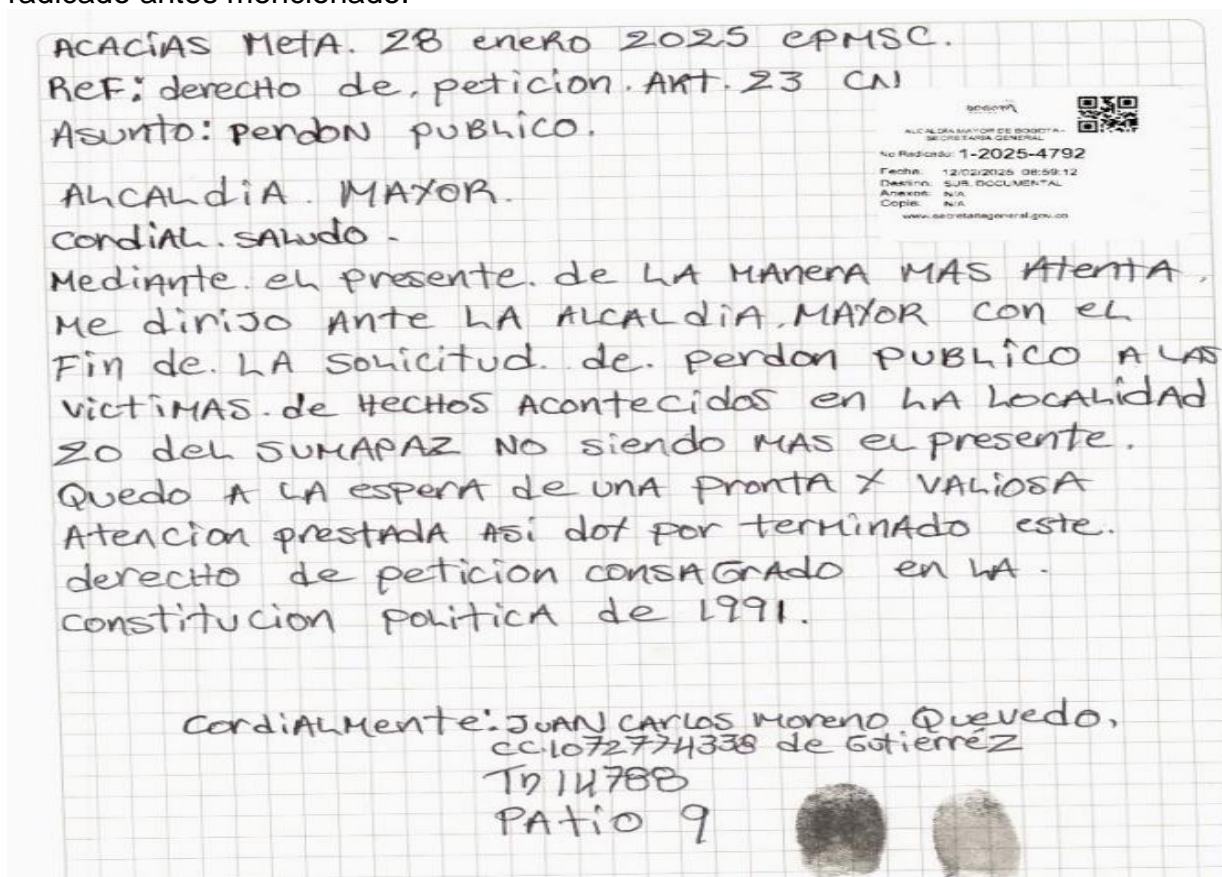 radicado antes mencionado.
ACACÍAS MetA. 28 eneRo 2025 ePMSC.
Ref: derecHo de. peticion. ARt. 23 CN
Asunto: peRdoN PUBLico.
BOGOTÁ
ALCALDIA MAYOR DE BOGOTA -
SECRETARIA GENERAL
No Radicado: 1-2025-4792
Fecha: 12/02/2025 08:59:12
Destino: SUB. DOCUMENTAL
Anexos: N/A
Copia: N/A
www.secretariageneral.gov.co
ALCALdiA. MAYOR.
CordiAL. SALudo.
MediAnte. eL presente. de LA MAnerA MAS AtentA.
Me diriJo Ante LA ALCALdiA. MAYOR con eL
Fin de. LA soLicitud. de. perdon PUBLico A LAS
victiMAS. de HecHos Acontecidos en LA LocALidAd
20 deL SUMAPAZ No siendo MAS eL presente.
Quedo A LA esperA de unA prontA Y VALiosA
Atencion prestAdA Asi doY por terMinAdo este.
derecHo de peticion consAGrAdo en LA.
constitucion poLiticA de 1991.
CordiALMente: JUAN CARLos Moreno Quevedo,
CC.1072774338 de Gutierréz
TD 14788
PAtio 9